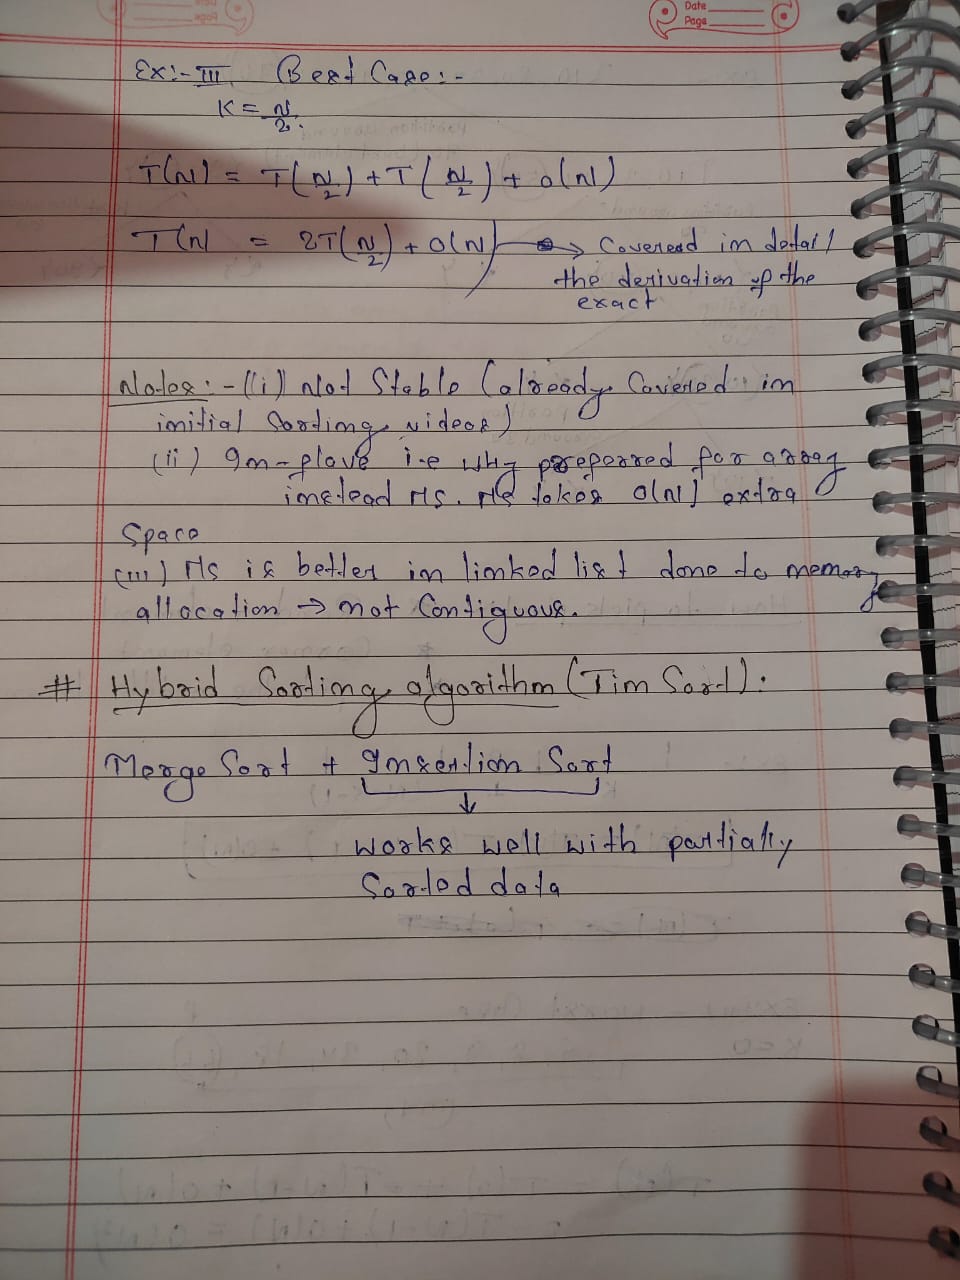 Date
Page
Ex:- III Best Case:-
K = N/2.
T(N) = T(N/2) + T(N/2) + O(N)
T(N) = 2T(N/2) + O(N) → Covered in detail
the derivation of the
exact
Notes:- (i) Not Stable (already Covered in
initial Sorting videos)
(ii) In-place i.e why preferred for array
instead MS. MS takes O(N) extra
Space
(iii) MS is better in linked list done to memory
allocation → not Contiguous.
# Hybrid Sorting algorithm (Tim Sort):
Merge Sort + Insertion Sort
↓
works well with partially
Sorted data